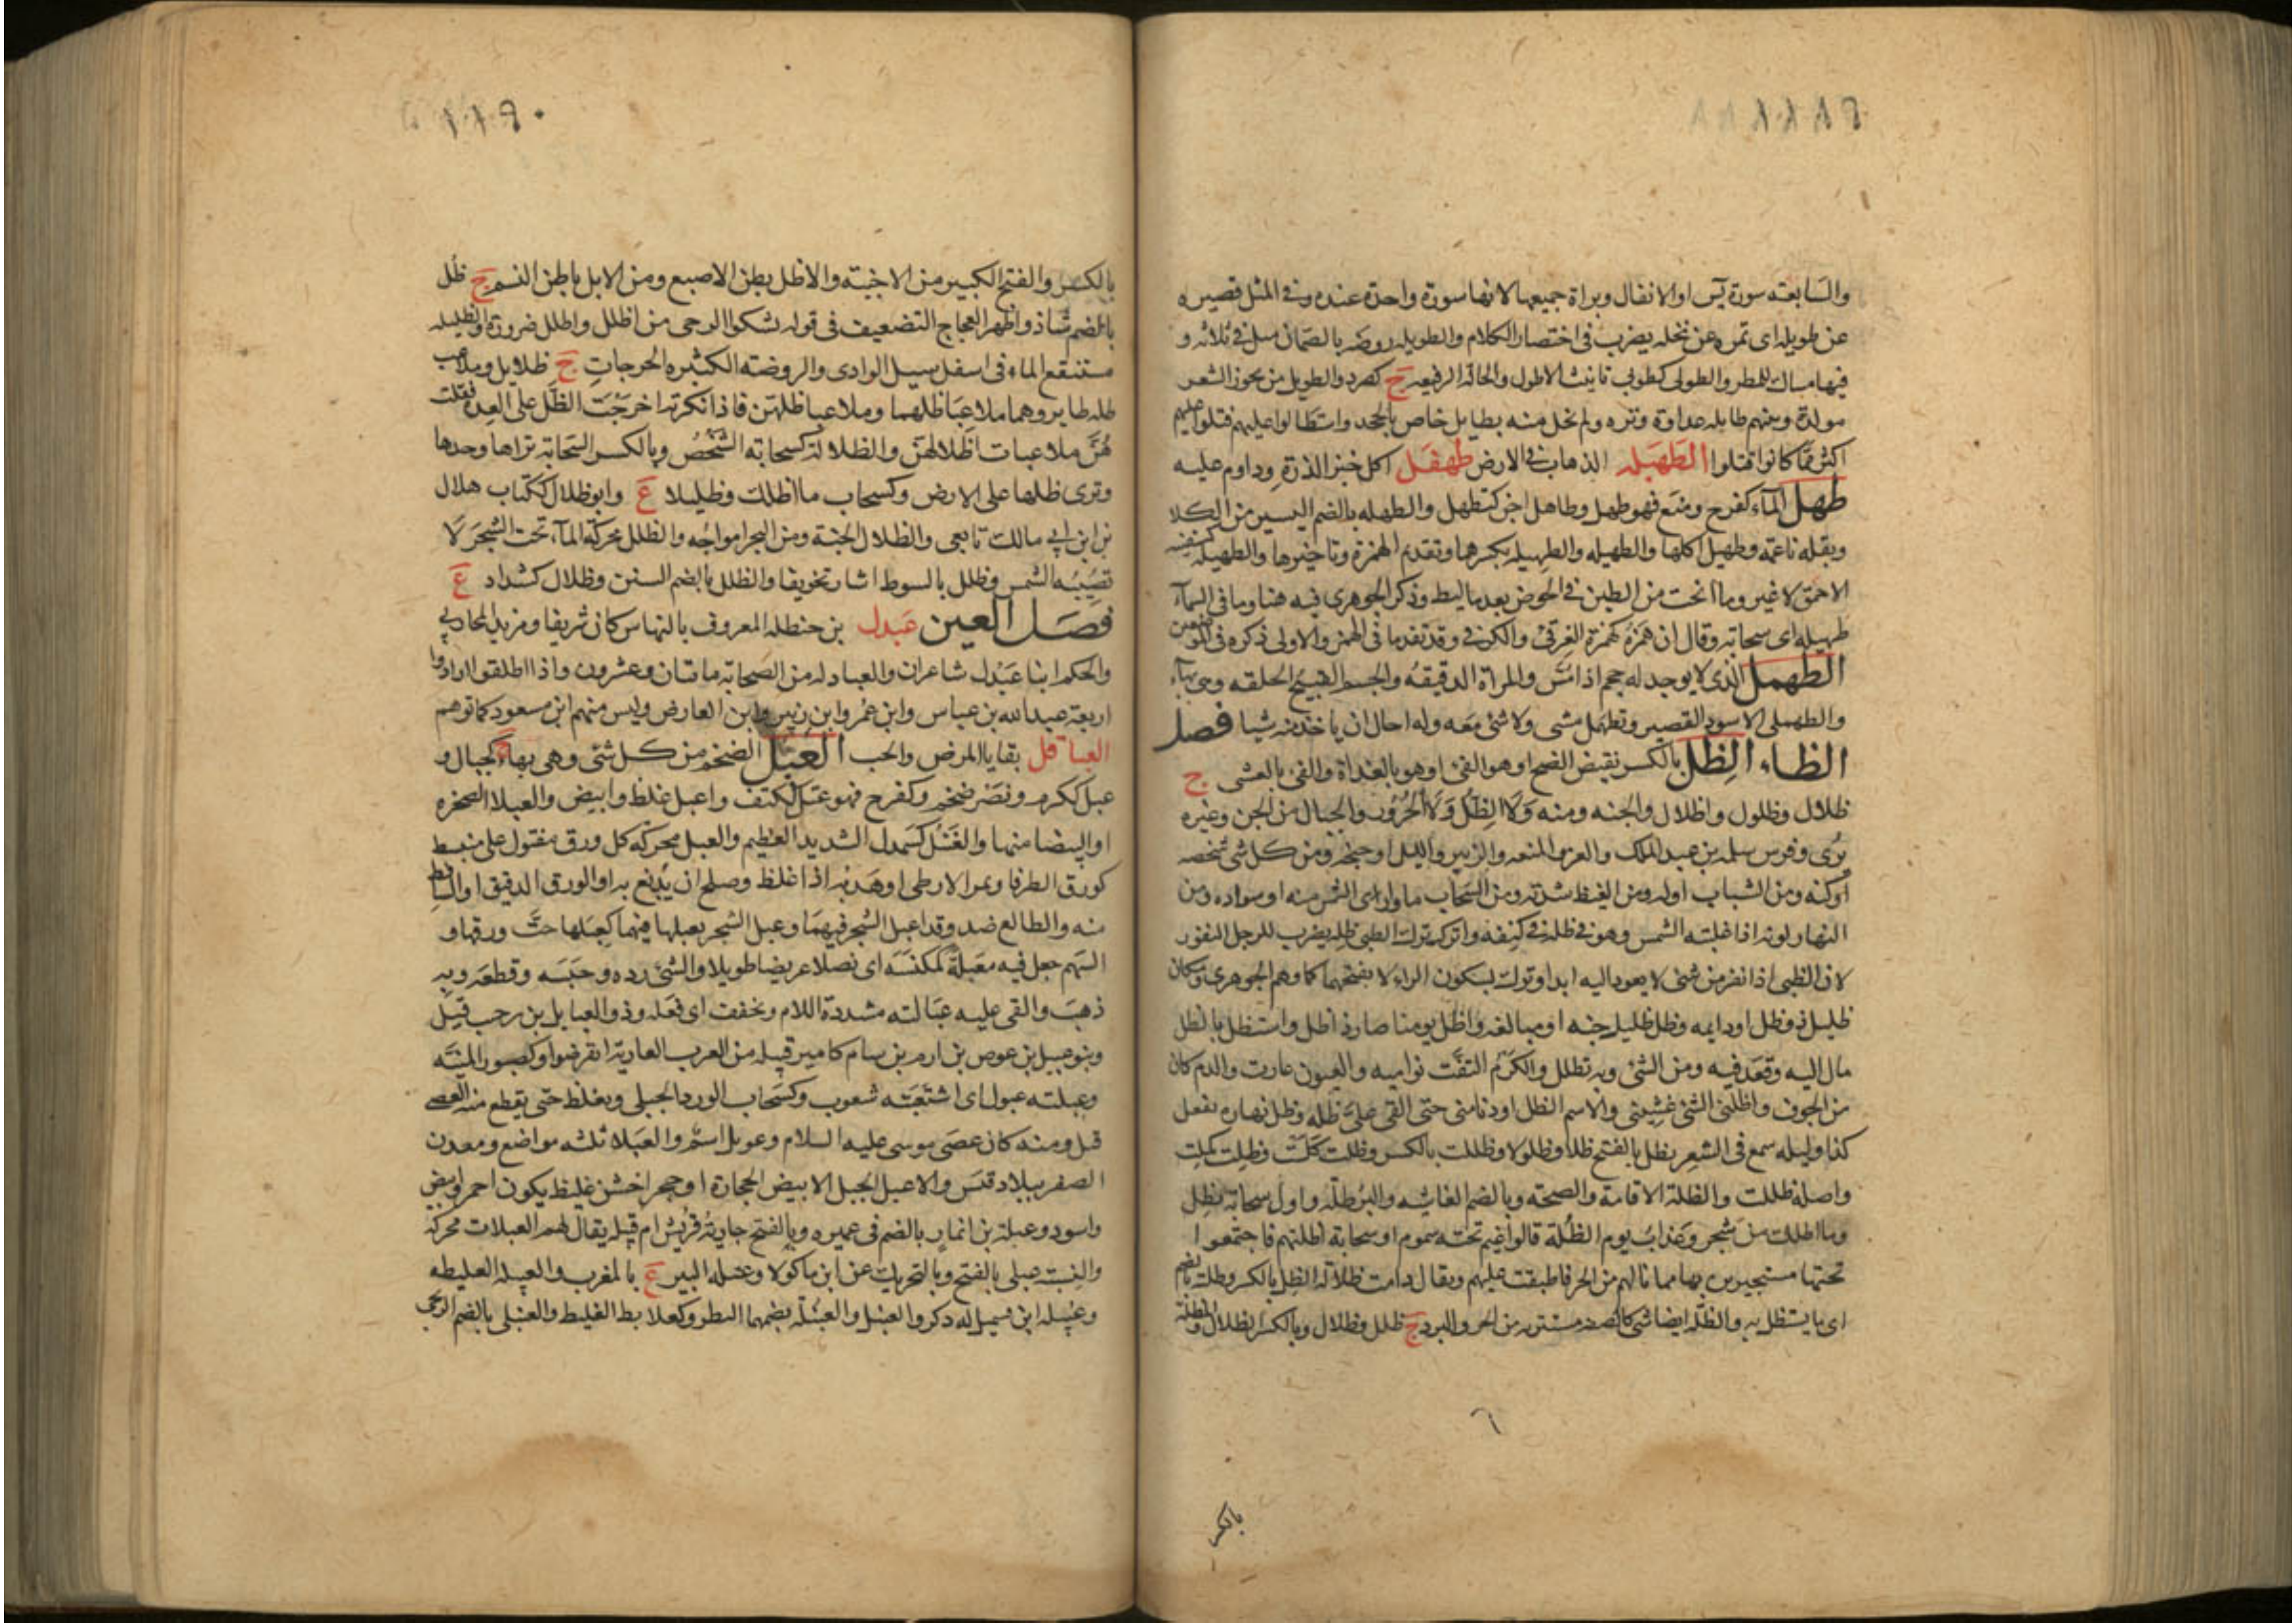 والسابعة سورة يس او الانفال وبراة جميعها لانها سورة واحدة عنده وفي المثل قصيره
عن طويله اى تمره عن نخله يضرب في اختصار الكلام والطويله روضه بالصمان ميل في ثلاثه و
فيها مساك للمطر والطولى كطوبى تانيث الاطول والحاله الرفيعه ج كصرد والطويل من بحور الشعر
مولدة وبينهم طايله عداوة وتره ولم نحل منه بطايل خاص بالجحد واستطالوا عليهم قتلوا منهم
اكثر مما كانوا قتلوا الطهبله الذهاب في الارض طهفل اكل خبز الذرة وداوم عليه
طهل المآء كفرح ومنع فهو طهل وطاهل اجن كتطهل والطهله بالضم اليسير من الكلا
وبقله ناعمه وطهيل اكلها والطهيله والطهيله بكسرهما وتقديم الهمزة وتاخيرها والطهيله كسفينه
الاحمق لا غير وما انحت من الطين في الحوض بعد ما ليط وذكر الجوهرى فيه هنا وما في السمآء
طهيله اى سحابه وقال ان همزه كهمزة الغرقئ والكرفئ وقد تقدما في الهمز والاولى ذكره في الموضعين
الطهمل الذى لا يوجد له حجم اذا مس والمراة الدقيقه والجسيم القبيح الخلقه وهى بهآء
والطهملى الاسود القصير وتطهمل مشى ولا شئ معه وله احال ان ياخذ منه شيا فصل
الظاء الظل بالكسر نقيض الضح او هو الفئ او هو بالغداة والفئ بالعشى ج
ظلال وظلول واظلال والجنه ومنه ولا الظل ولا الحرور والخيال من الجن وغيره
يرى وفرس مسلمه بن عبد الملك والعز والمنعه والزبير والليل او جنحه ومن كل شئ شخصه
او كنه ومن الشباب اوله ومن القيظ شدته ومن السحاب ما وارى الشمس منه او سواده ومن
النهار لونه اذا غلبته الشمس وهو في ظله في كنفه واتركه ترك الظبى ظله يضرب للرجل النفور
لان الظبى اذا نفر من شئ لا يعود اليه ابدا وترك بسكون الراء لا بفتحها كما وهم الجوهرى ومكان
ظليل ذو ظل او دايمه وظل ظليل جنه او مبالغه واظل يومنا صار ذا ظل واستظل بالظل
مال اليه وقعد فيه ومن الشئ وبه تظلل والكرم التفت نواميه والعيون غارت والدم كان
من الجوف واظلنى الشئ غشينى والاسم الظل او دنا منى حتى القى على ظله وظل نهاره يفعل
كذا وليله سمع في الشعر يظل بالفتح ظلا وظلولا وظللت بالكسر وظلت كلت وظلت كملت
واصله ظللت والظلة الاقامة والصحه وبالضم الغاشيه والبرطلة واول سحابة تظل
وما اظلك من شجر وعذاب يوم الظلة قالوا غيم تحته سموم او سحابة اظلتهم فاجتمعوا
تحتها مستجيرين بها مما نالهم من الحر فاطبقت عليهم ويقال دامت ظلالة الظل بالكسر وظلته بالضم
اى ما يستظل به والظله ايضا شئ كالصفه يستتر به من الحر والبرد ج ظلل وظلال وبالكسر الظلال والمظلة
بالكسر
بالكسر والفتح الكبير من الاخبية والاظل بطن الاصبع ومن الابل باطن المنسم ج ظل
بالضم شاذ واظهر العجاج التضعيف في قوله تشكوا الوجى من اظلل واظلل ضرورة والظليله
مستنقع الماء في اسفل مسيل الوادى والروضه الكثيره الحرجات ج ظلايل وملاعب
ظله طاير وهما ملاعبا ظلهما وملاعبا ظلهن فاذا نكرته اخرجت الظل على العده فقلت
هن ملاعبات اظلالهن والظلالة كسحابه الشخص وبالكسر السحابة تراها وحدها
وترى ظلها على الارض وكسحاب ما اظلك وظليلا ع وابو ظلال ككتاب هلال
بن ابى مالك تابعى والظلال الجنة ومن البحر امواجه والظلل محركة المآء تحت الشجر لا
تصيبه الشمس وظلل بالسوط اشار تخويفا والظلل بالضم السفن وظلال كشداد ع
فصل العين عبدل بن حنظله المعروف بالنهاس كان شريفا ومزيد المحاربي
والحكم ابنا عبدل شاعران والعبادله من الصحابة مائتان وعشرون واذا اطلقوا ارادوا
اربعة عبد الله بن عباس وابن عمر وابن زبير وابن العاص وليس منهم ابن مسعود كما توهم
العباقل بقايا المرض والحب العبل الضخم من كل شئ وهى بهاء ج كجبال و
عبل ككرم ونصر ضخم وكفرح فهو عبل ككتف واعبل غلظ وابيض والعبلا الصخره
او البيضا منها والعبل كسمندل الشديد العظيم والعبل محركه كل ورق مفتول غير منبسط
كورق الطرفا وثمر الارطى او هدبه اذا غلظ وصلح ان يدبغ به او الورق الدقيق او الساقط
منه والطالع ضد وقد اعبل الشجر فيهما وعبل الشجر يعبلها فيهما كعبلها حت ورقها و
السهم جعل فيه معبلة كمكنسه اى نصلا عريضا طويلا والشئ رده وحبسه وقطعه وبه
ذهب والقى عليه عبالته مشددة اللام وتخفف اى ثقله وذو العبايل بن رحيب قيل
وبنو عبيل بن عوص بن ارم بن سام كامير قبيله من العرب العاربة انقرضوا وكصبور المنيه
وعبلته عبول اى اشتعبته شعوب وكسحاب الورد الجبلى ويغلظ حتى يقطع منه العصى
قيل ومنه كان عصى موسى عليه السلام وعوبل اسم والعبلا ثلثه مواضع ومعدن
الصفر ببلاد قيس والاعبل الجبل الابيض الحجارة او حجر اخشن غليظ يكون احمر وابيض
واسود وعبلة بن انمار بالضم في عميره وبالفتح جارية قريش ام قبيله يقال لهم العبلات محركه
والنسبة عبلى بالفتح وبالتحريك عن ابن ماكولا وعبله البير ع بالمغرب والعبيله الغليظه